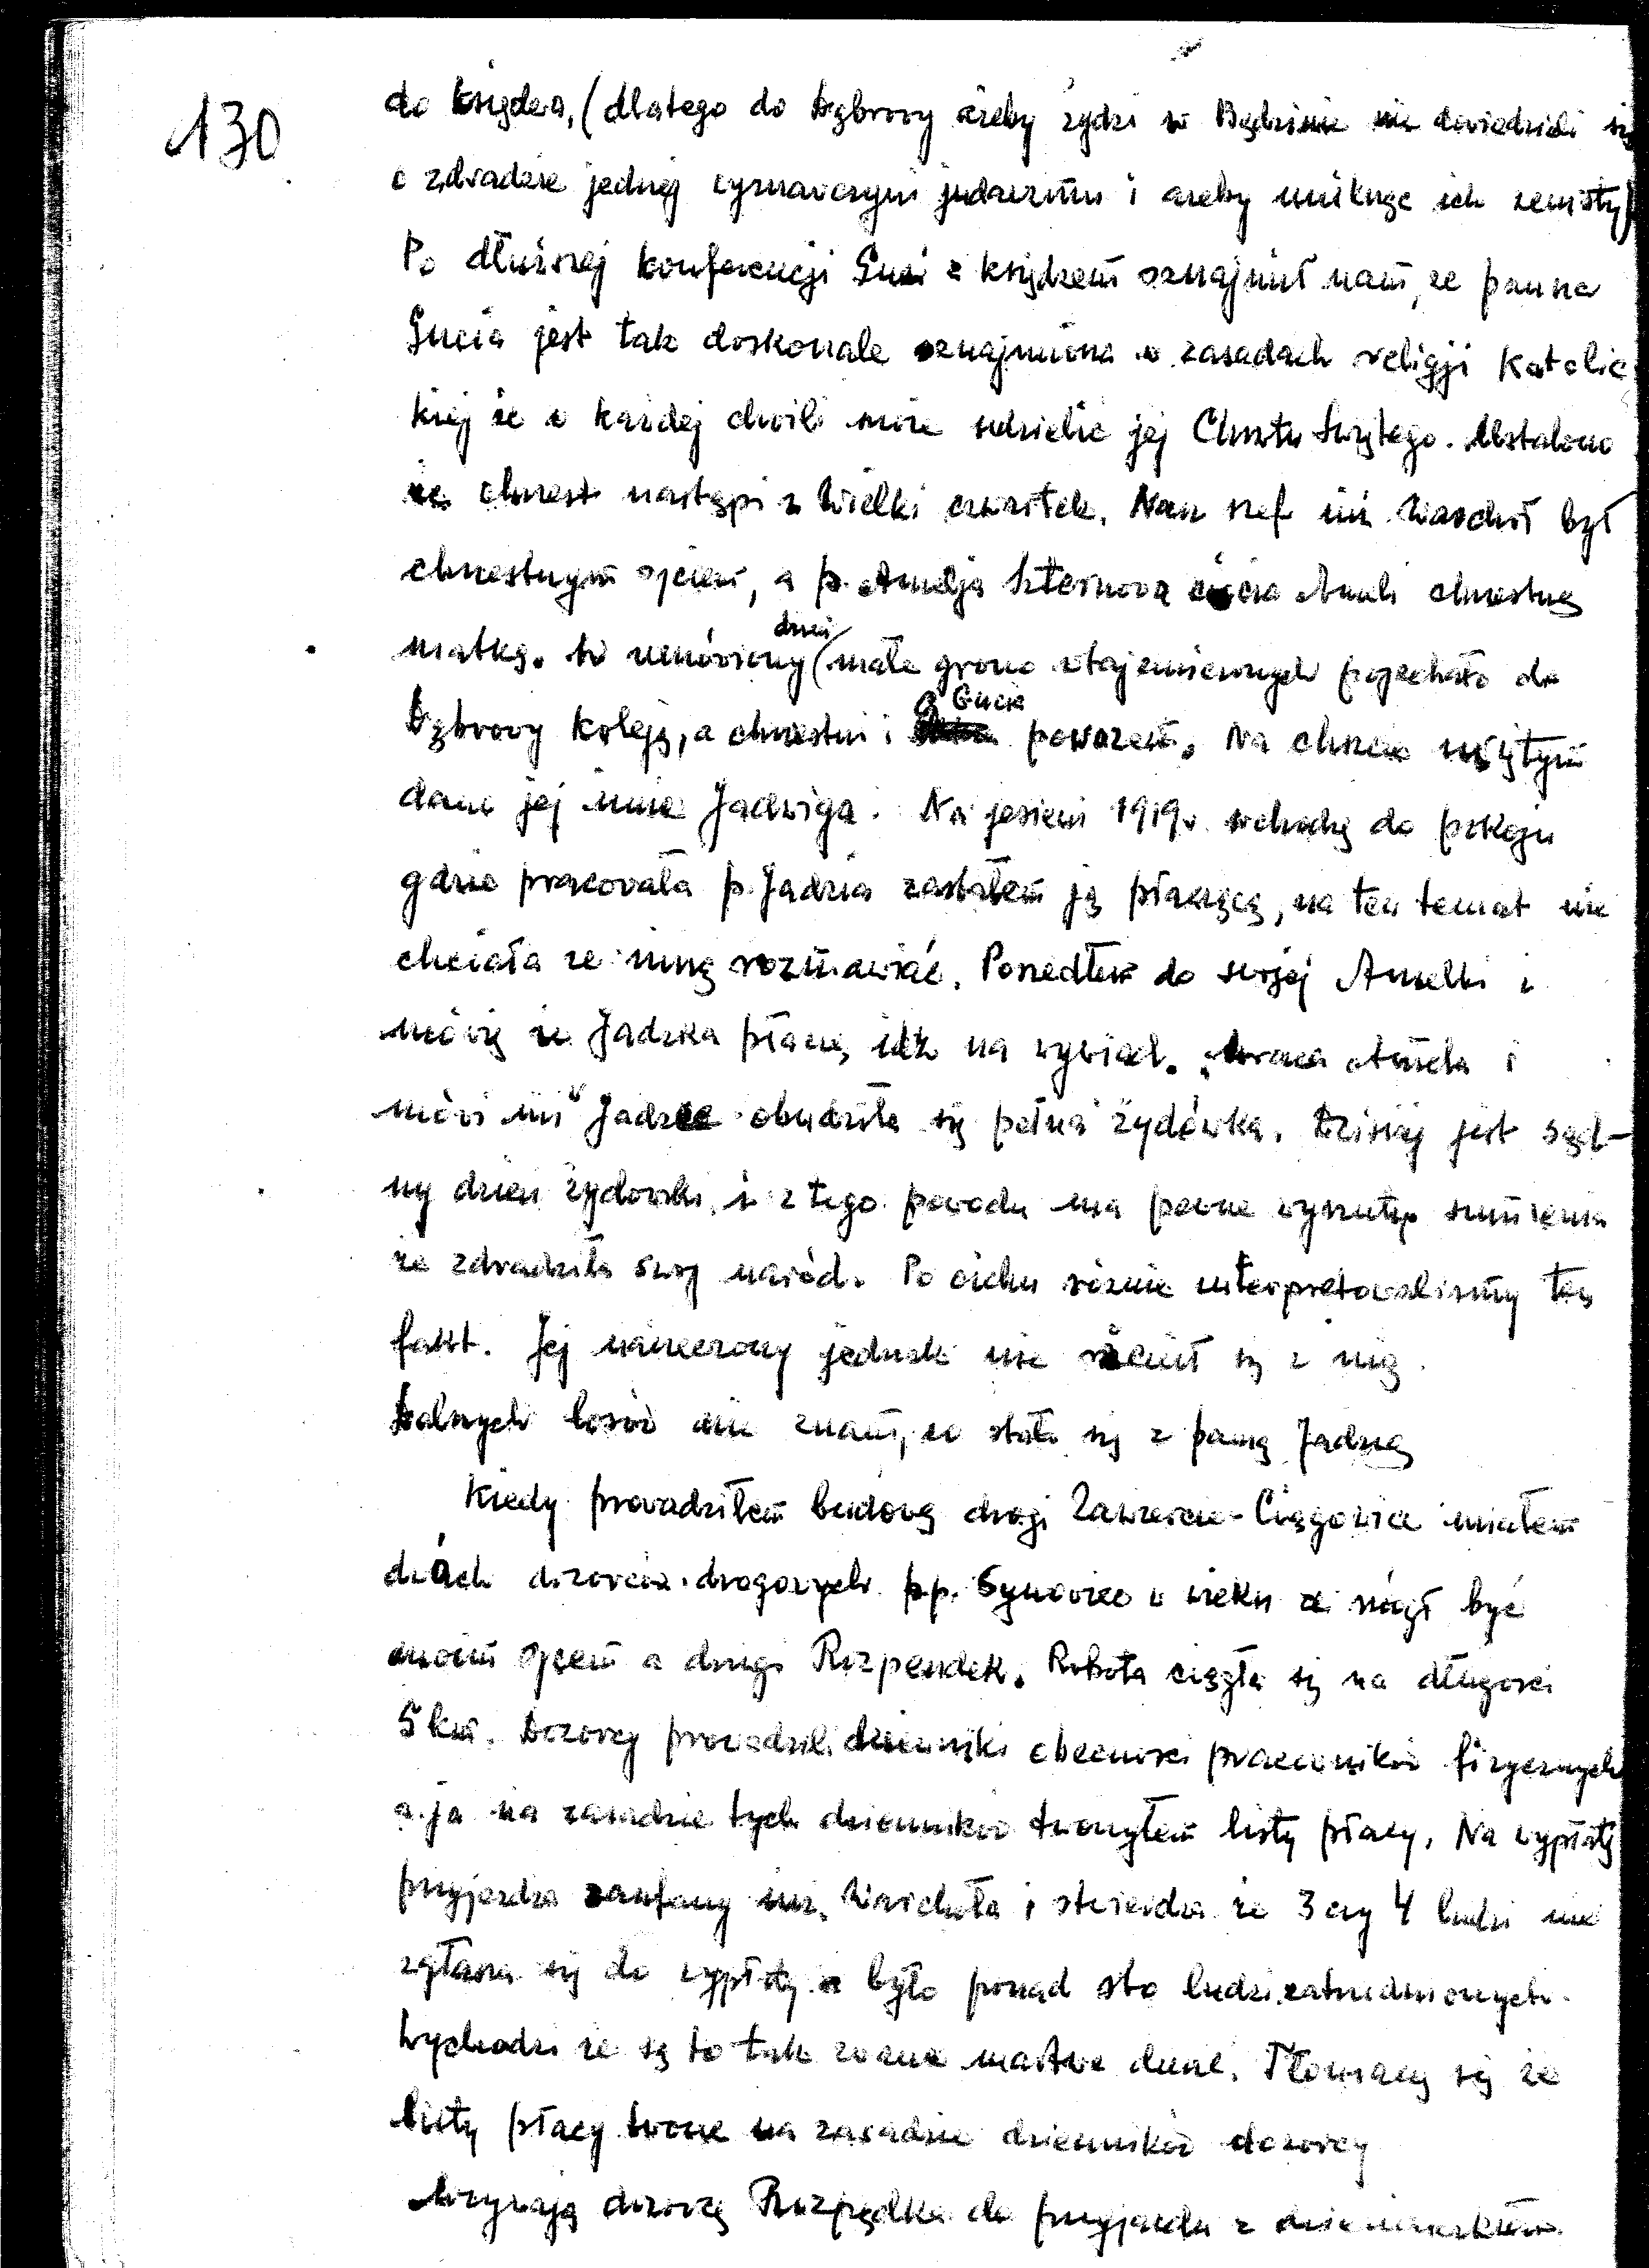 130
do księdza, (dlatego do Dąbrowy żeby żydzi w Będzinie nie dowiedzieli się
o zdradzie jednej wyznawczyni judaizmu i żeby uniknąć ich zemsty)
Po dłuższej konferencji Guci z księdzem oznajmił nam, że panna
Gucia jest tak doskonale oznajmiona w zasadach religji katolic
kiej że w każdej chwili może udzielić jej Chrztu Świętego. Ustalono
że chrzest nastąpi w Wielki czwartek. Nasz szef inż. był
chrzestnym ojcem, a p. Amelja ciocia Amelii chrzestną
matką. W umówiony dzień małe grono wtajemniczonych pojechało do
Dąbrowy koleją, a chrzestni i Gucia powozem. Na chrzcie świętym
dano jej imię Jadwiga. Na jesieni 1919r. wchodzę do pokoju
gdzie pracowała p. Jadzia zastałem ją płaczącą, na ten temat nie
chciała ze mną rozmawiać. Poszedłem do swojej Amelki i
mówię że Jadzka płacze, idź na wywiad. Wraca Amelka i
mówi mi "Jadzce obudziła się pełna żydówka. Dzisiaj jest sąd-
ny dzień żydowski i z tego powodu ma pewne wyrzuty sumienia
że zdradziła swój naród. Po cichu różnie interpretowaliśmy ten
fakt. Jej narzeczony jednak nie ożenił się z nią.
Dalszych losów nie znam, co stało się z panną Jadzią
Kiedy prowadziłem budowę drogi Zawiercie-Ciągowice miałem
dwóch dozorców drogowych pp. Synowiec w wieku że mógł być
moim ojcem a drugi Rozpendek. Robota ciągła się na długości
5 km. Dozorcy prowadzili dzienniki obecności pracowników fizycznych
a ja na zasadzie tych dzienników tworzyłem listy płacy. Na wypłatę
przyjeżdża zaufany inż. i stwierdza że 3 czy 4 ludzi nie
zgłasza się do wypłaty a było ponad sto ludzi zatrudnionych.
Wychodzi że są to tak zwane martwe dusze. Tłomaczę się że
listy płacy tworzę na zasadzie dzienników dozorcy
Wzywają dozorcę Rozpędka do przyjazdu z dziennikiem